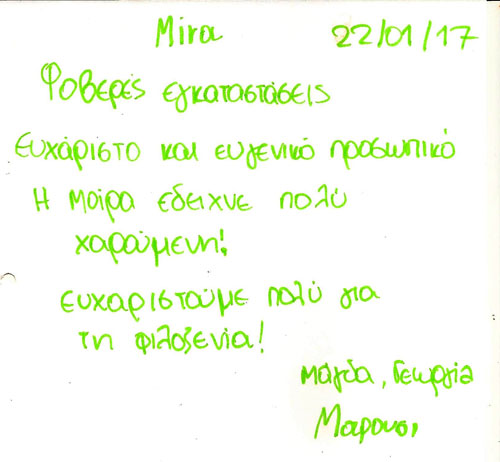 Mira 22/01/17
Φοβερές εγκαταστάσεις
Ευχάριστο και ευγενικό προσωπικό
Η Μοίρα εδειχνε πολύ
χαρούμενη!
ευχαριστούμε πολύ για
τη φιλοξενία!
Μάγδα, Γεωργία
Μαρουσι